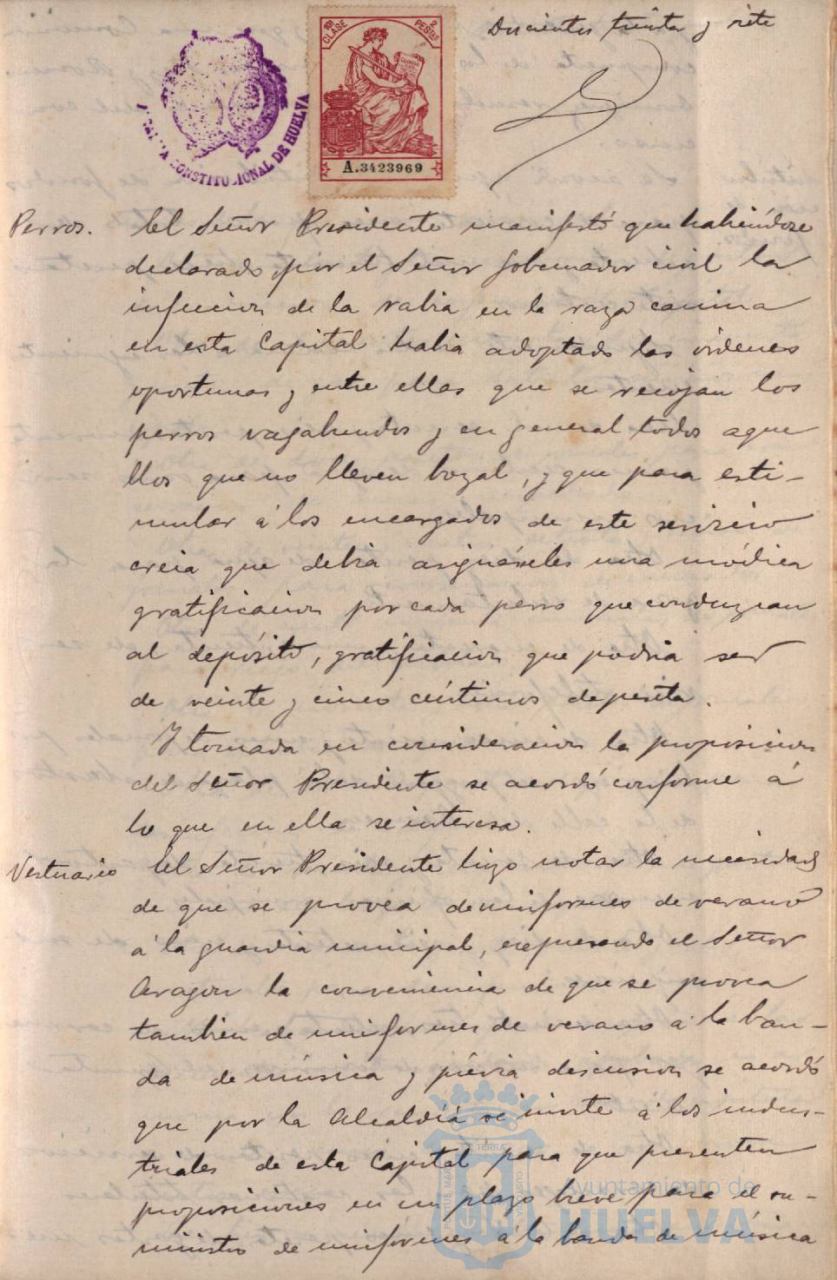 Doscientos treinta y siete
ALCALDIA CONSTITUCIONAL DE HUELVA
CLASE
PESETAS
A.3423969
Perros. El Señor Presidente manifestó que habiéndose
declarado por el Señor Gobernador civil la
infeccion de la rabia en la raza canina
en esta Capital habia adoptado las órdenes
oportunas y entre ellas que se recojan los
perros vagabundos y en general todos aque
llos que no lleven bozal, y que para esti-
mular á los encargados de este servicio
creia que debia asignárseles una módica
gratificacion por cada perro que conduzcan
al depósito, gratificacion que podria ser
de veinte y cinco céntimos de peseta.
Y tomada en consideracion la proposicion
del Señor Presidente se acordó conforme á
lo que en ella se interesa.
Vestuario El Señor Presidente hizo notar la necesidad
de que se provea de uniformes de verano
á la guardia municipal, expresando el Señor
Aragon la conveniencia de que se provea
tambien de uniformes de verano á la ban-
da de música y prévia discusion se acordó
que por la Alcaldiá se invite á los indus-
triales de esta Capital para que presenten
proposiciones en un plazo breve para el su-
ministro de uniformes a la banda de música
Ayuntamiento de
HUELVA